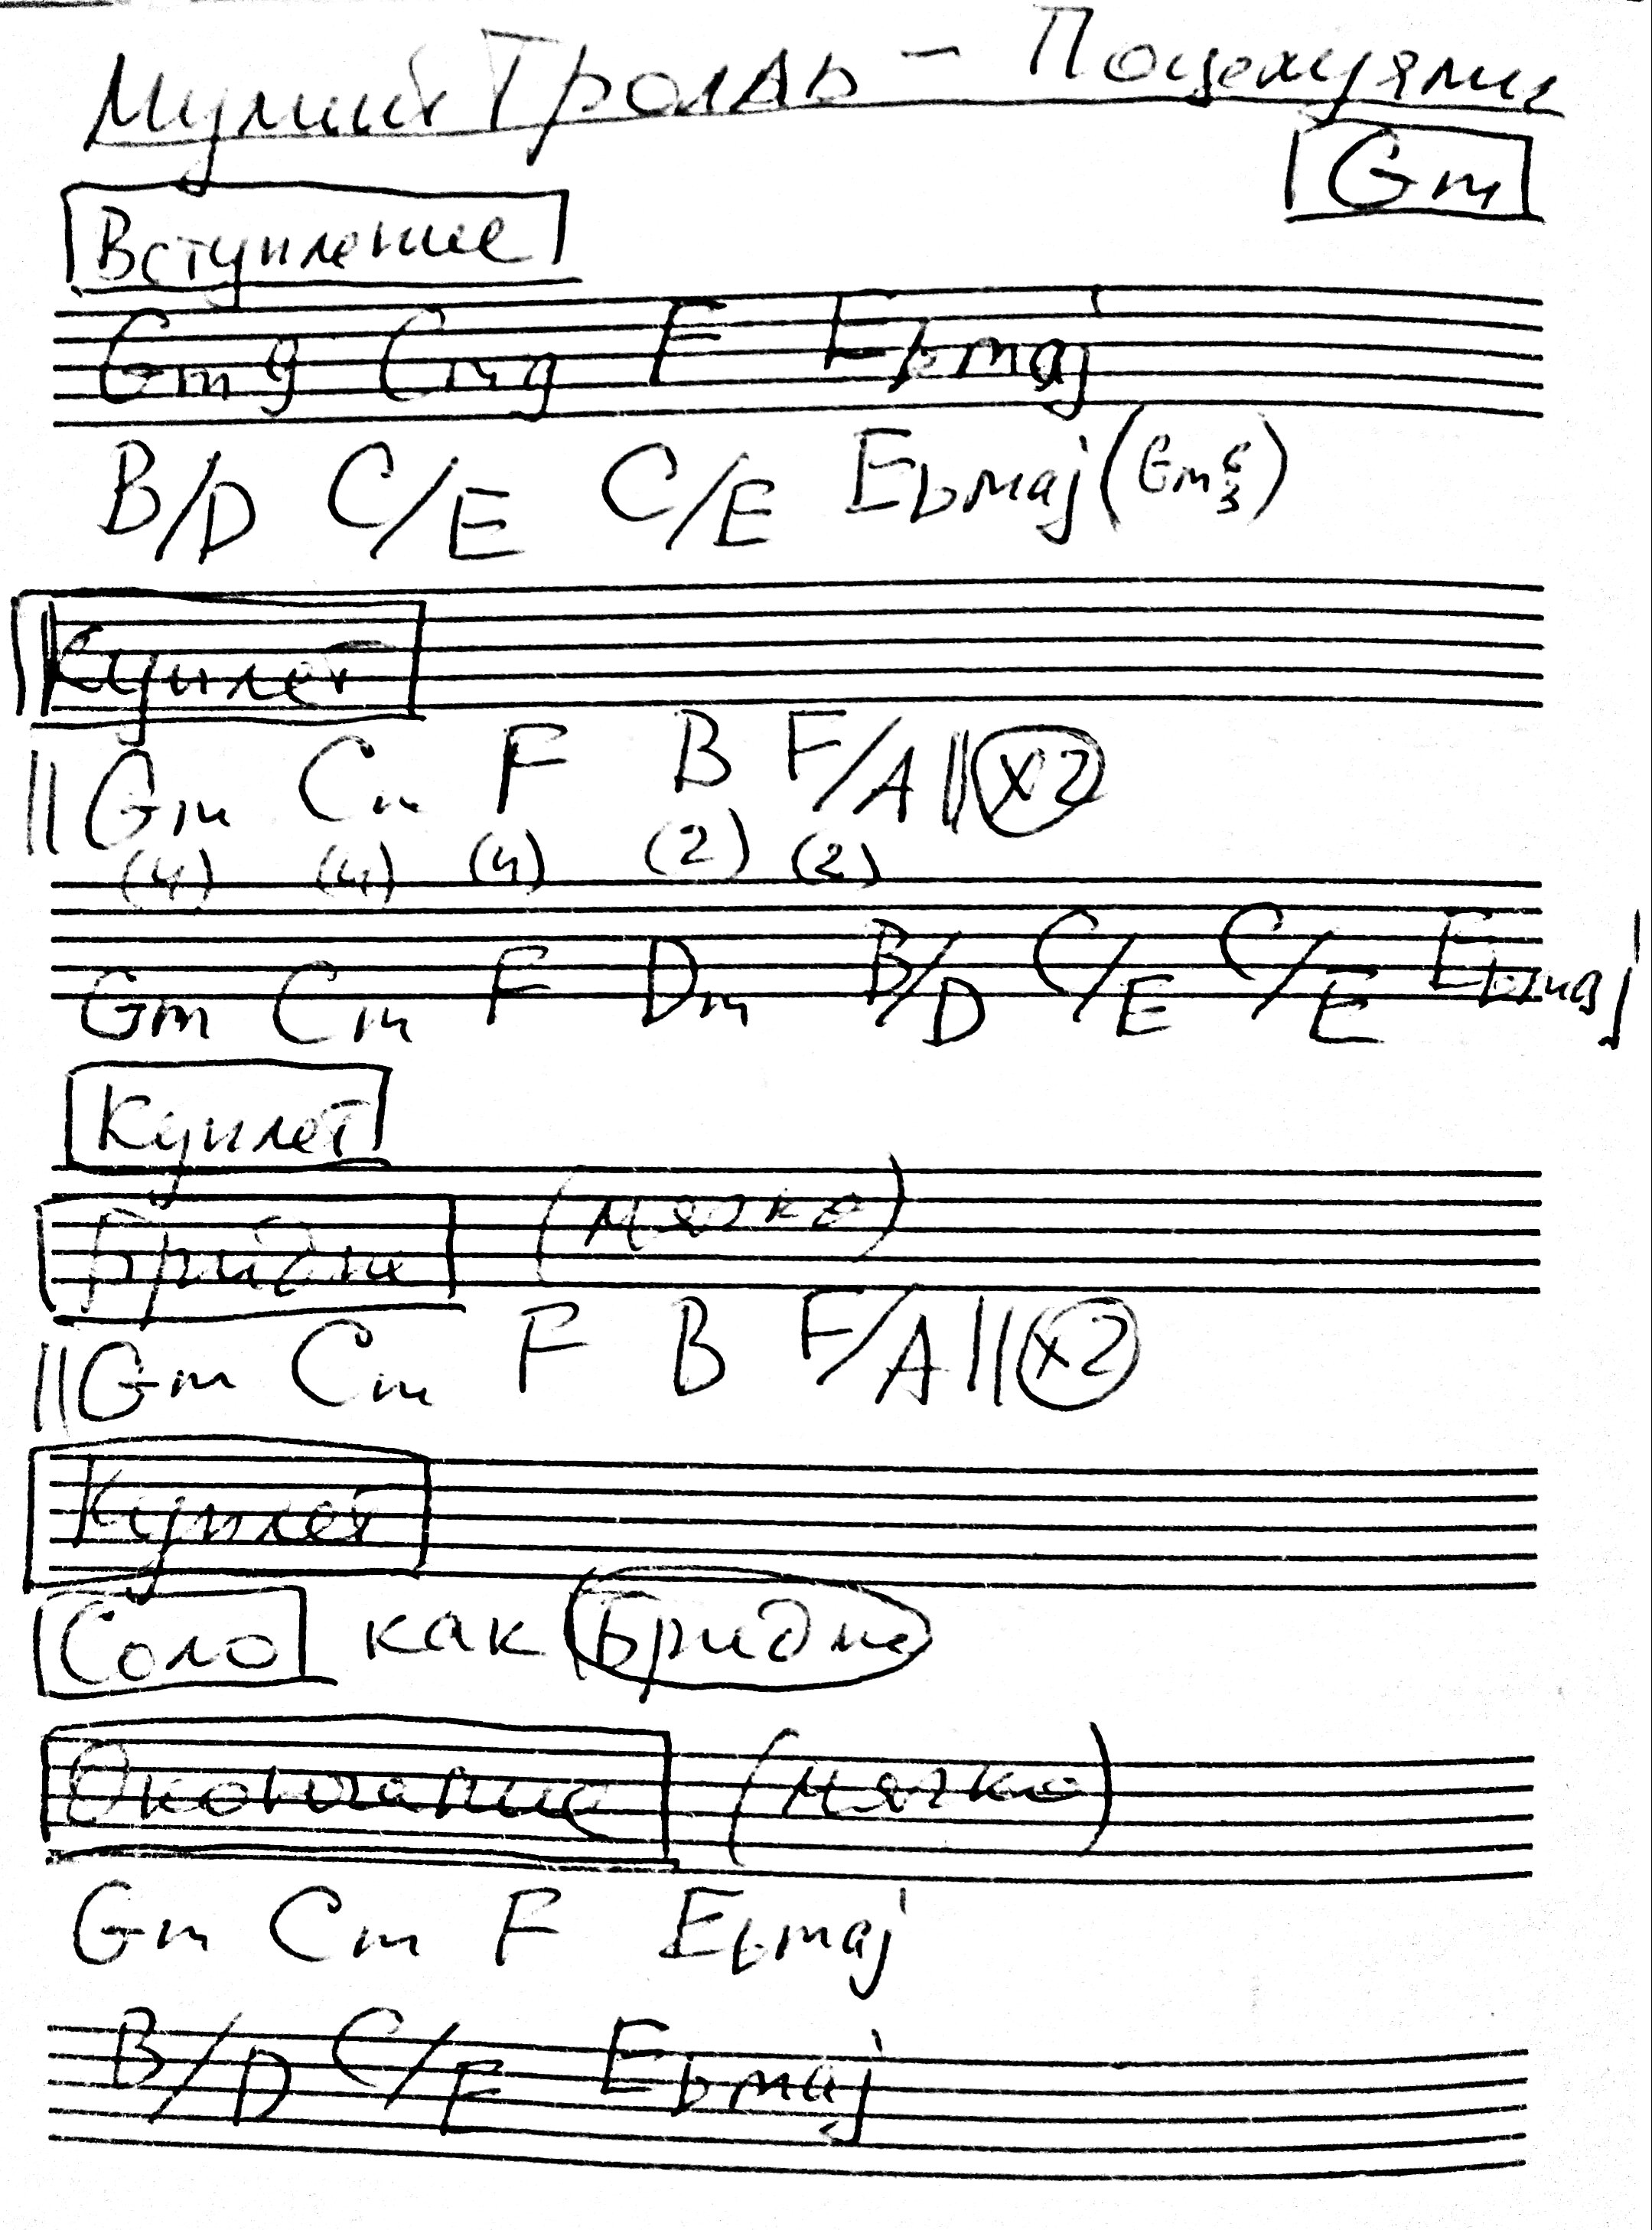 Мумий Тролль - Поцелуями
Gm
Вступление
Gm9 Cm9 F Ebmaj
B/D C/E C/E Ebmaj (Gm 6 3)
Куплет
|| Gm Cm F B F/A || x2
(4) (4) (4) (2) (2)
Gm Cm F Dm B/D C/E C/E Ebmaj
Куплет
Бридж (мягко)
|| Gm Cm F B F/A || x2
Куплет
Соло как Бридж
Окончание (мягко)
Gm Cm F Ebmaj
B/D C/E Ebmaj